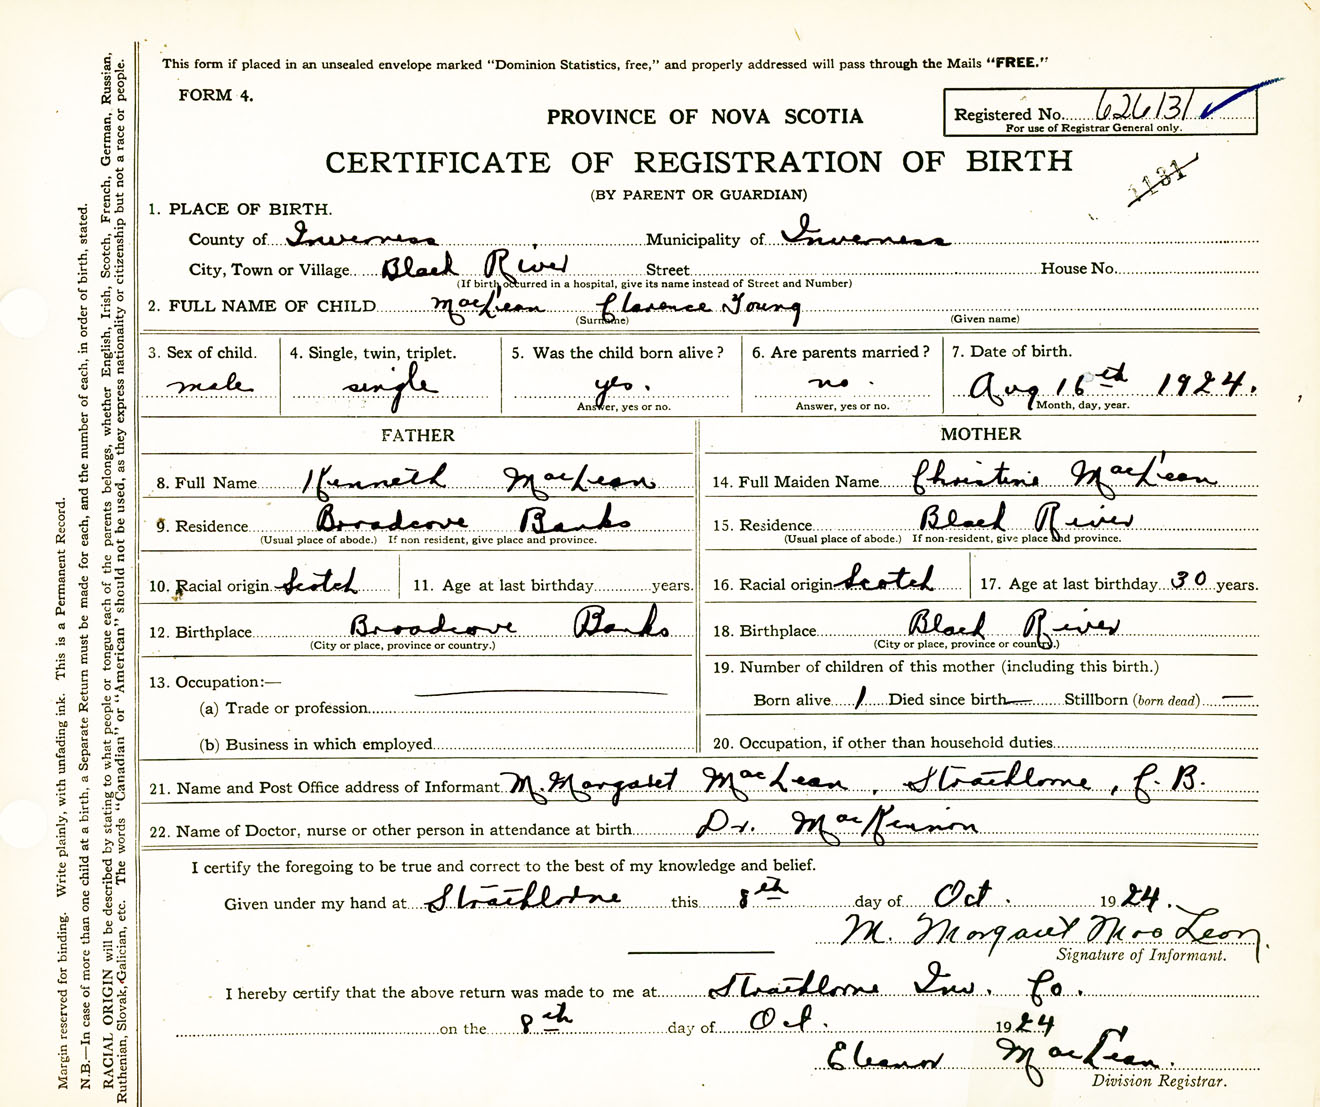 This form if placed in an unsealed envelope marked "Dominion Statistics, free," and properly addressed will pass through the Mails "FREE."
FORM 4.
PROVINCE OF NOVA SCOTIA
Registered No. 626131
For use of Registrar General only.
CERTIFICATE OF REGISTRATION OF BIRTH
1131
(BY PARENT OR GUARDIAN)
1. PLACE OF BIRTH.
County of Inverness Municipality of Inverness
City, Town or Village Black River Street House No.
(If birth occurred in a hospital, give its name instead of Street and Number)
2. FULL NAME OF CHILD MacLean Clarence Young
(Surname) (Given name)
3. Sex of child. 4. Single, twin, triplet. 5. Was the child born alive? 6. Are parents married? 7. Date of birth.
male single yes. no. Aug 16th 1924.
Answer, yes or no. Answer, yes or no. Month, day, year.
FATHER MOTHER
8. Full Name Kenneth MacLean 14. Full Maiden Name Christine MacLean
9. Residence Broadcove Banks 15. Residence Black River
(Usual place of abode.) If non resident, give place and province. (Usual place of abode.) If non-resident, give place and province.
10. Racial origin Scotch 11. Age at last birthday years. 16. Racial origin Scotch 17. Age at last birthday 30 years.
12. Birthplace Broadcove Banks 18. Birthplace Black River
(City or place, province or country.) (City or place, province or country.)
13. Occupation:— 19. Number of children of this mother (including this birth.)
(a) Trade or profession Born alive 1 Died since birth — Stillborn (born dead) —
(b) Business in which employed 20. Occupation, if other than household duties
21. Name and Post Office address of Informant M. Margaret MacLean, Strathlorne, C. B.
22. Name of Doctor, nurse or other person in attendance at birth Dr. MacKinnon
I certify the foregoing to be true and correct to the best of my knowledge and belief.
Given under my hand at Strathlorne this 8th day of Oct. 1924.
M. Margaret MacLean.
Signature of Informant.
I hereby certify that the above return was made to me at Strathlorne Inv. Co.
on the 8th day of Oct. 1924
Eleanor MacLean.
Division Registrar.
Margin reserved for binding. Write plainly, with unfading ink. This is a Permanent Record.
N.B.—In case of more than one child at a birth, a Separate Return must be made for each, and the number of each, in order of birth, stated.
RACIAL ORIGIN will be described by stating to what people or tongue each of the parents belongs, whether English, Irish, Scotch, French, German, Russian,
Ruthenian, Slovak, Galician, etc. The words "Canadian" or "American" should not be used, as they express nationality or citizenship but not a race or people.